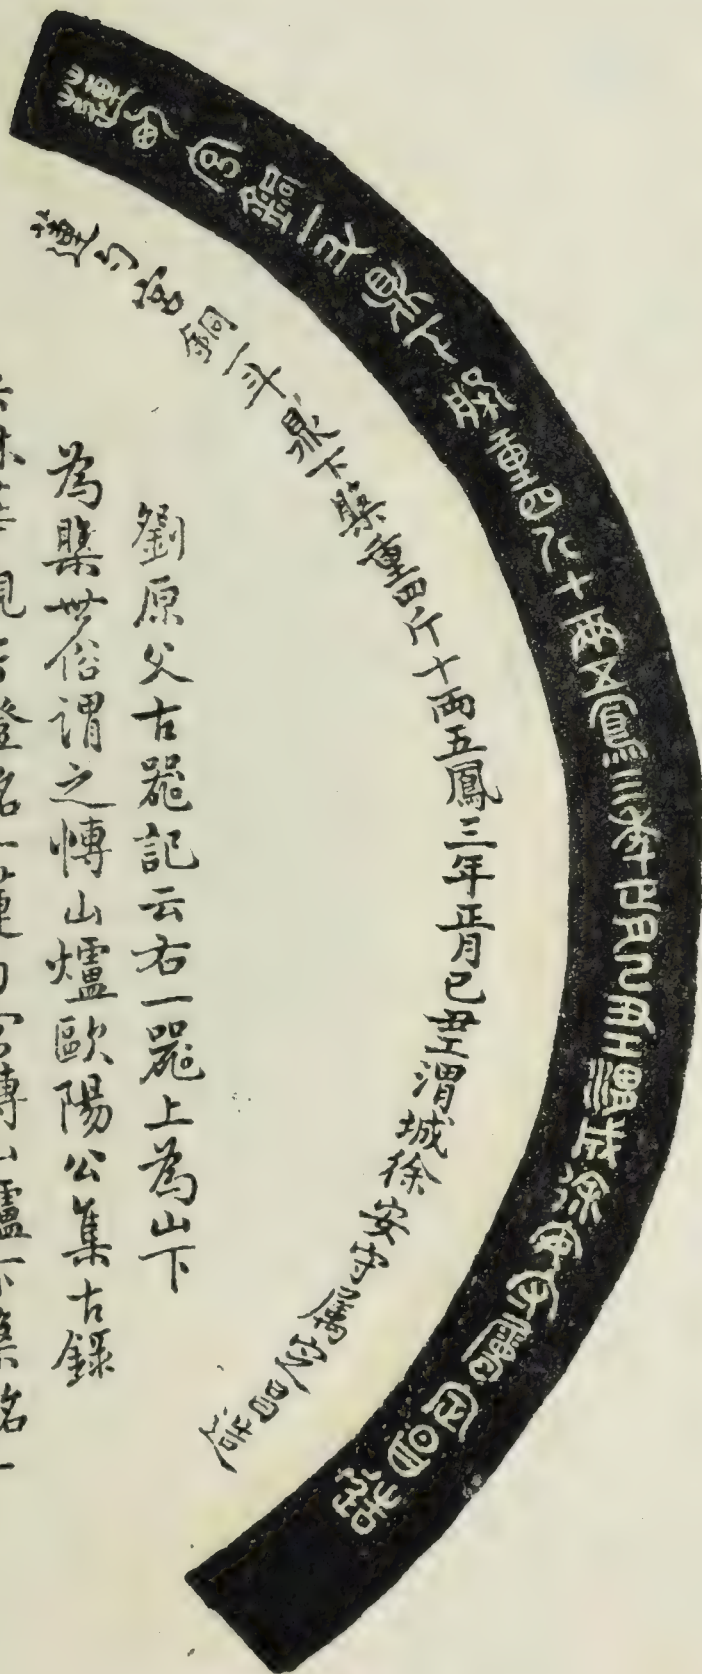 蓮勺宮銅一斗鼎下槃重四斤十兩五鳳三年正月己丑工渭成徐安守屬定昌造
蓮勺宮銅一斗鼎下槃重四斤十兩五鳳三年正月己丑工渭城徐安守屬定昌造
劉原父古器記云右一器上為山下
為槃世俗謂之愽山爐歐陽公集古錄
云林華觀行燈銘一蓮勺宮博山爐下槃銘一